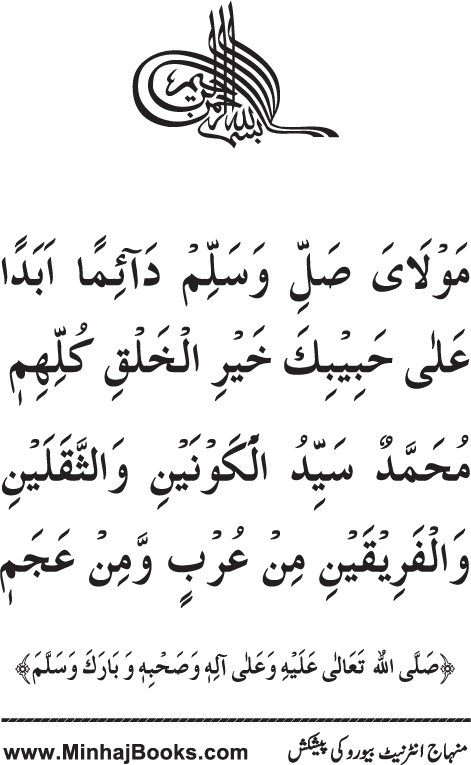 بسم الله الرحمن الرحيم
مَوْلَايَ صَلِّ وَسَلِّمْ دَآئِمًا اَبَدًا
عَلٰی حَبِيْبِكَ خَيْرِ الْخَلْقِ كُلِّهِمِ
مُحَمَّدٌ سَيِّدُ الْكَوْنَيْنِ وَالثَّقَلَيْنِ
وَالْفَرِيْقَيْنِ مِنْ عُرْبٍ وَّمِنْ عَجَمِ
﴿صَلَّى اللهُ تَعَالٰى عَلَيْهِ وَعَلٰى آلِهٖ وَصَحْبِهٖ وَبَارَكَ وَسَلَّمَ﴾
منہاج انٹرنیٹ بیورو کی پیشکش
www.MinhajBooks.com